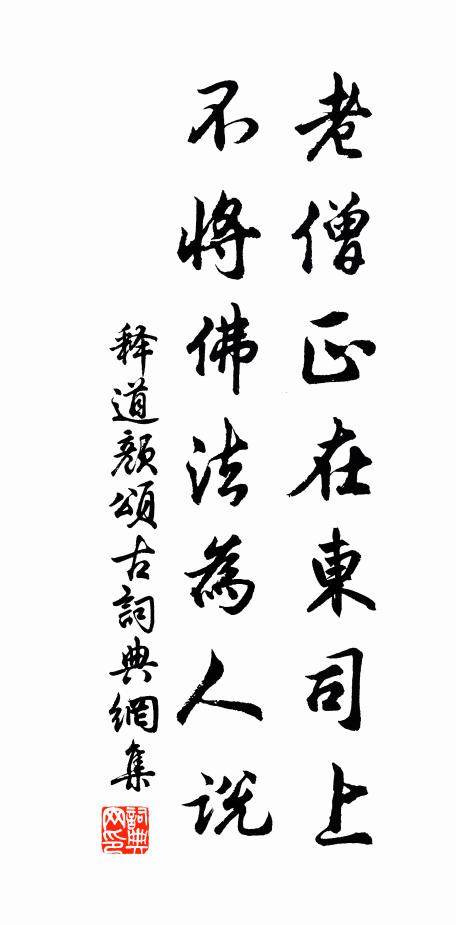 老僧正在東司上
不將佛法為人說
释道颜頌古詞典網集
詞典网印